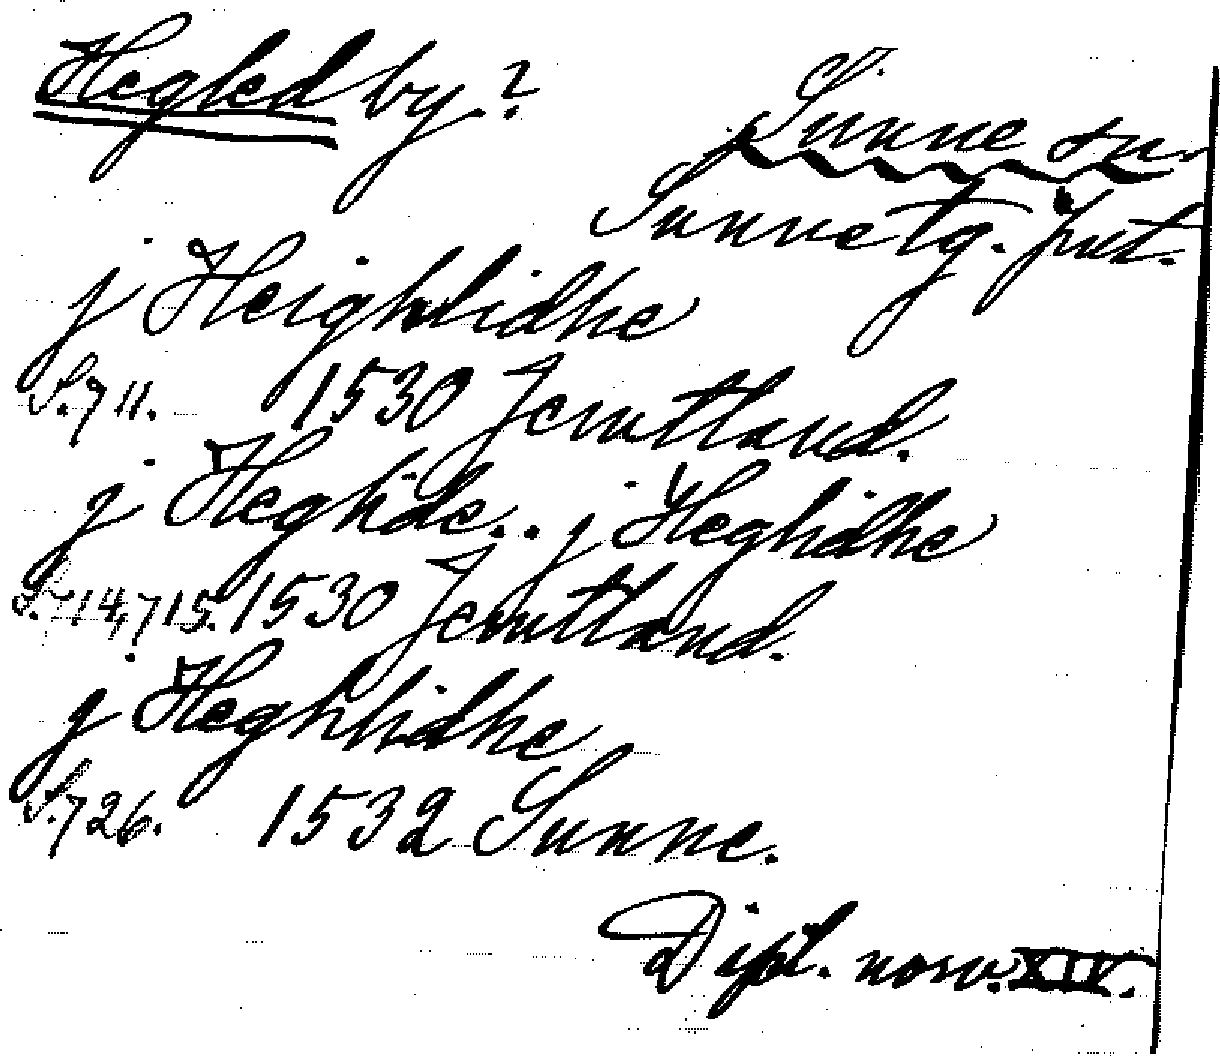 Hegled by?
Sunne sn.
Sunne tg. Jmt.
j Heighlidhe
S. 711. 1530 Jemtland.
j Heglide.. j Heglidhe
S. 714, 715. 1530 Jemtland.
j Heghlidhe
S. 726. 1532 Sunne.
Dipl. norv. XIV.